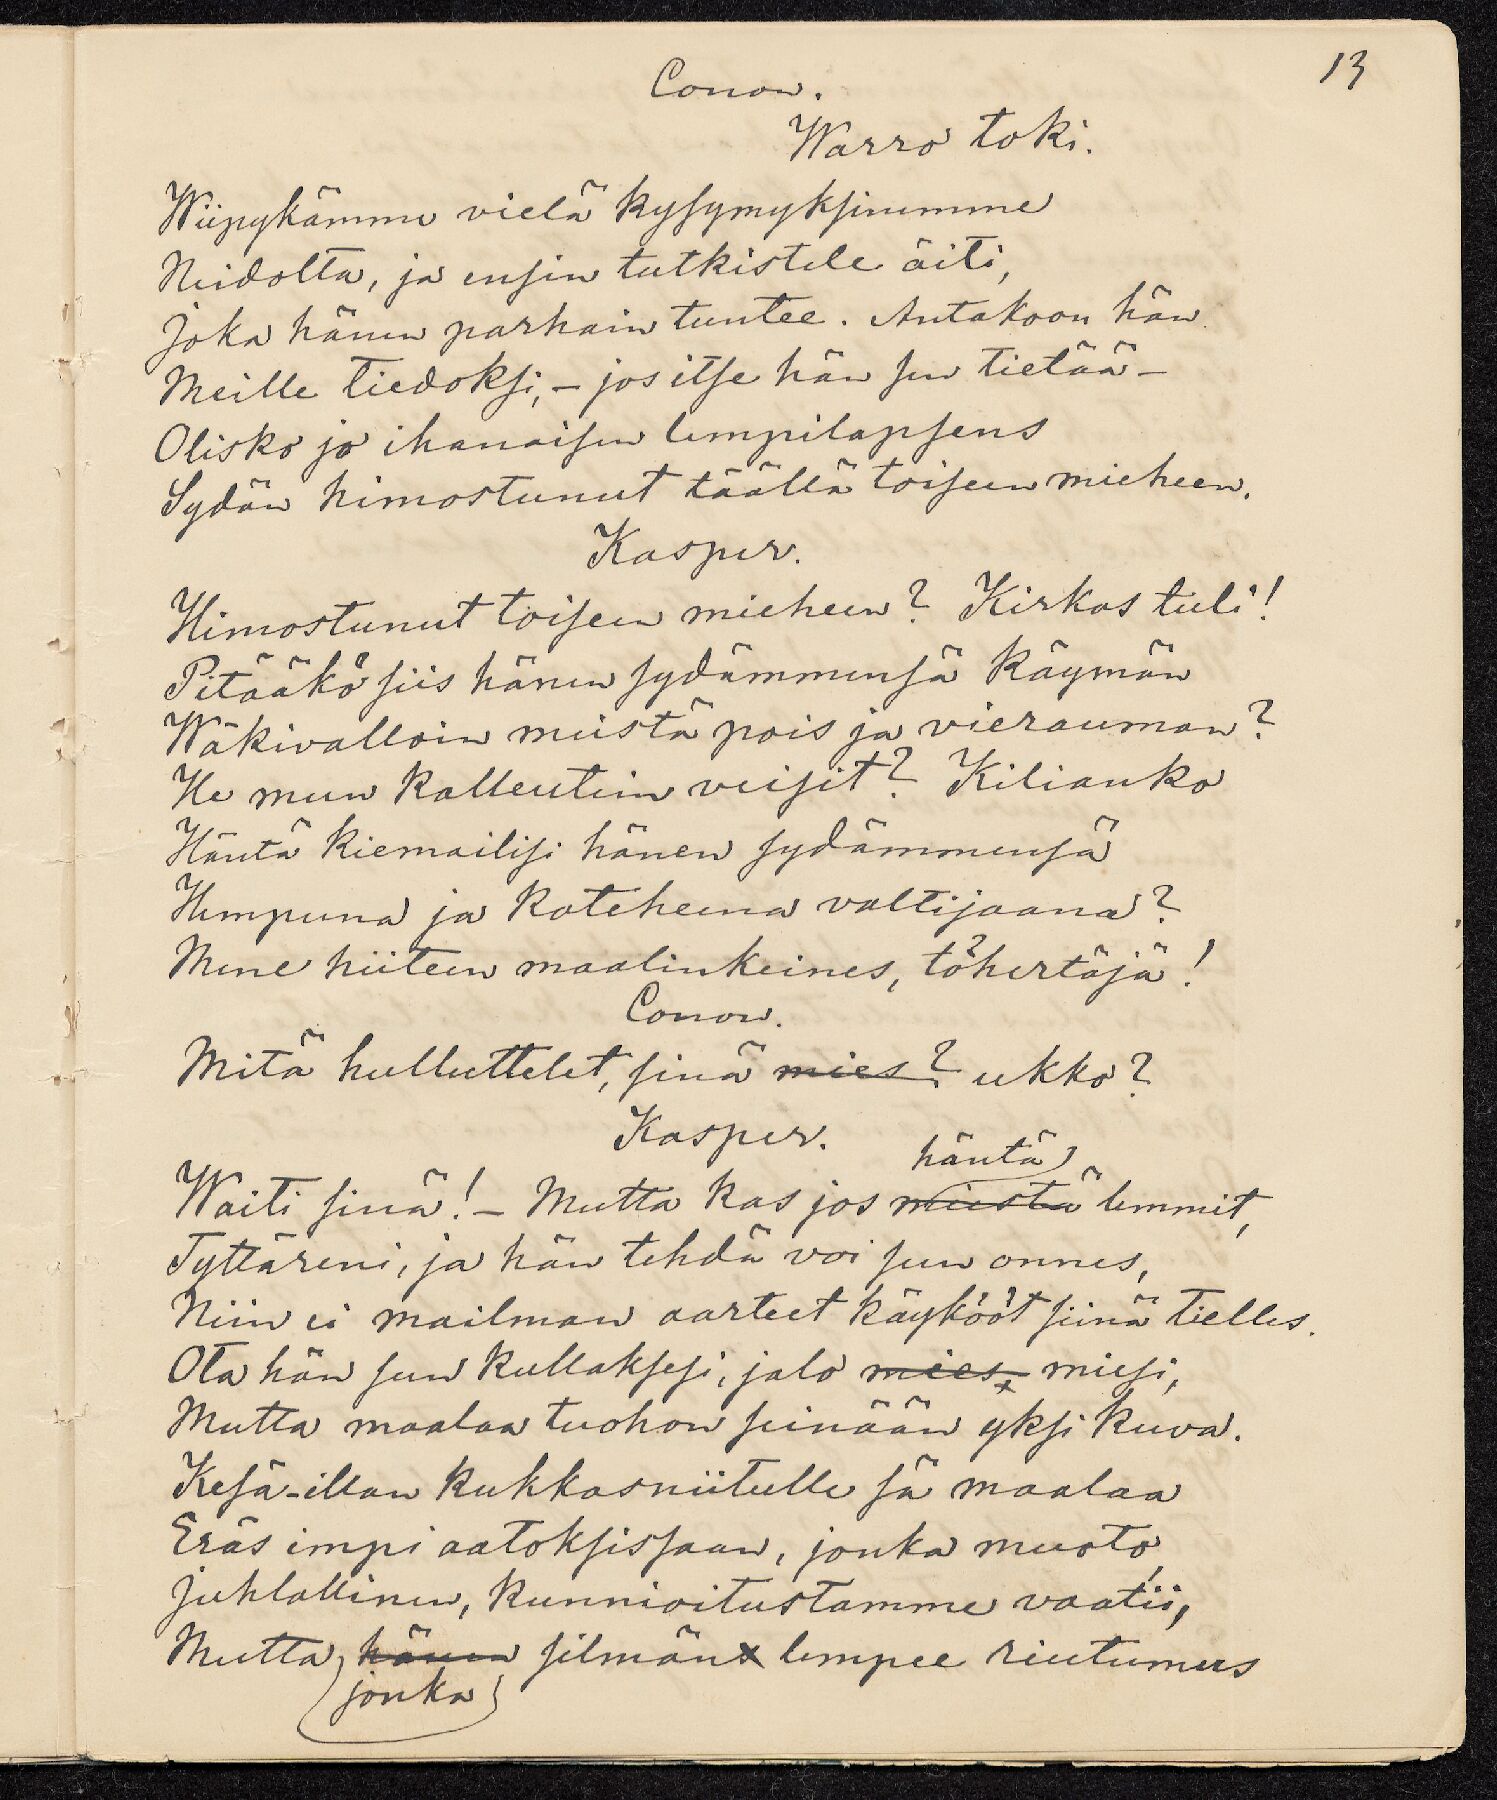 13
Conon.
Warro toki.
Wiipykämme vielä kysymyksinemme
Neidolta, ja ensin tutkistele äiti,
Joka hänen parhain tuntee. Antakoon hän
Meille tiedoksi, – jos itse hän sen tietää –
Olisko jo ihanaisen lempilapsens
Sydän himostunut täällä toiseen mieheen.
Kasper.
Himostunut toiseen mieheen? Kirkas tuli!
Pitääkö siis hänen sydämmensä käymän
Wäkivalloin meistä pois ja vierauman?
He mun kalleutein veisit? Kilianko
Häntä kiemailisi hänen sydämmensä
Hempuna ja kateheena valtijaana?
Mene hiiteen maalinkeines, töhertäjä!
Conon.
Mitä hulluttelet, sinä mies? ukko?
Kasper.
häntä
Waiti sinä! – Mutta kas jos miestä lemmit,
Tyttäreni, ja hän tehdä voi sun onnes,
Niin ei mailman aarteet käykööt siinä tielles.
Ota hän sun kullaksesi, jalo mies, miesi,
Mutta maalaa tuohon seinään yksi kuva.
Kesä-illan kukkasniitulle sä maalaa
Eräs impi aatoksissaan, jonka muoto,
Juhlallinen, kunnioitustamme vaatii,
Mutta hänen silmän lempee riutumus
jonka